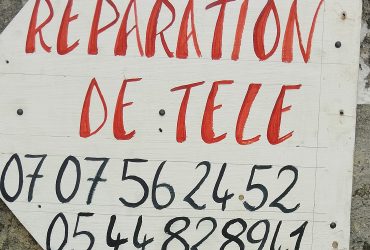 REPARATION
DE TELE
07 07 56 24 52
05 44 82 89 41